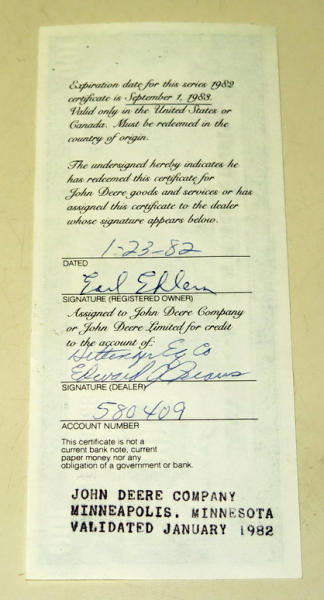 Expiration date for this series 1982
certificate is September 1, 1983.
Valid only in the United States or
Canada. Must be redeemed in the
country of origin.
The undersigned hereby indicates he
has redeemed this certificate for
John Deere goods and services or has
assigned this certificate to the dealer
whose signature appears below.
1-23-82
DATED
Earl Ehlen
SIGNATURE (REGISTERED OWNER)
Assigned to John Deere Company
or John Deere Limited for credit
to the account of:
Eq Co
Edward
SIGNATURE (DEALER)
580409
ACCOUNT NUMBER
This certificate is not a
current bank note, current
paper money nor any
obligation of a government or bank.
JOHN DEERE COMPANY
MINNEAPOLIS, MINNESOTA
VALIDATED JANUARY 1982